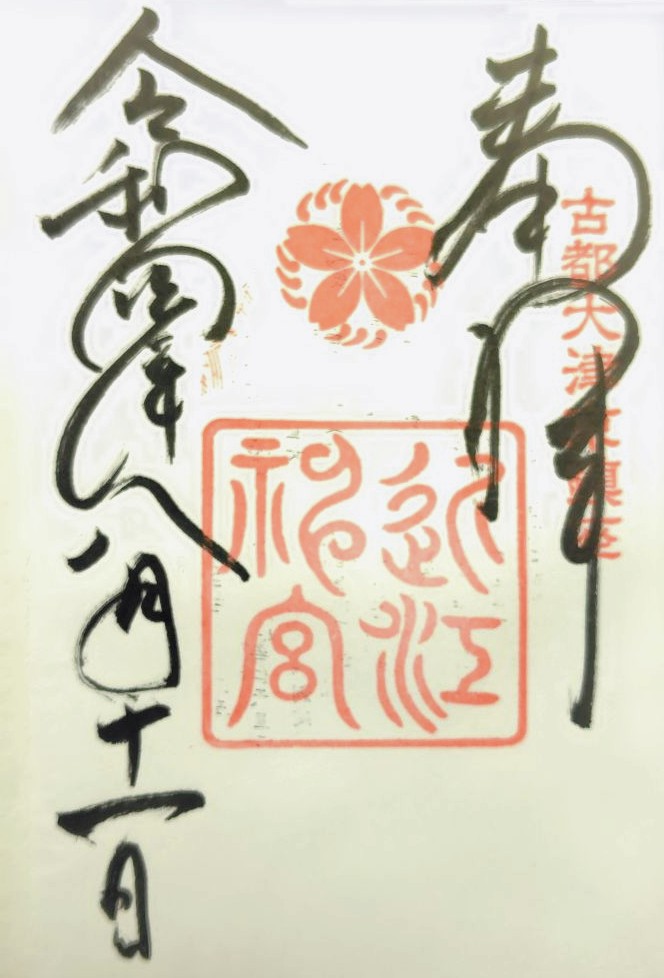 古都大津京鎮座
奉拝
近江
神宮
令和四年八月十一日